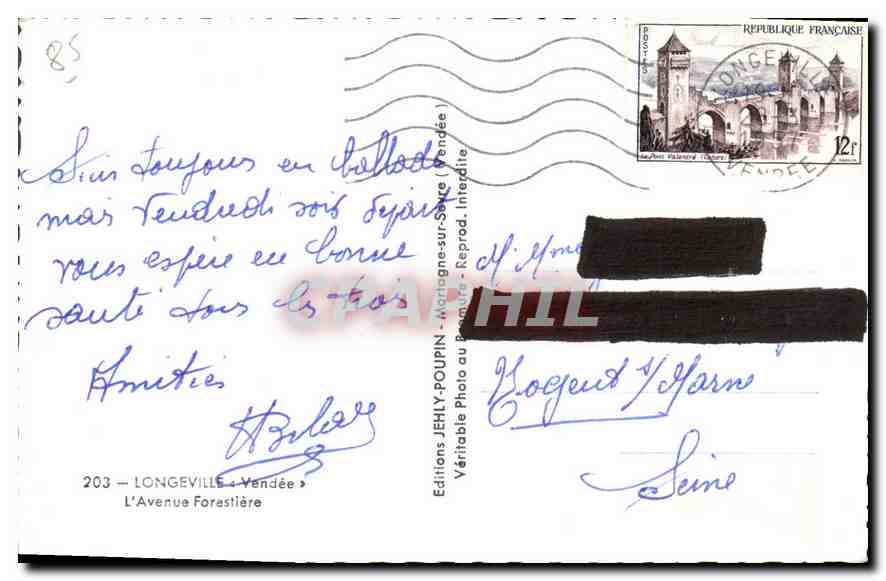 85
Suis toujours en ballade
mais vendredi soir départ
vous espère en bonne
santé tous les trois
Amitiés
203 — LONGEVILLE « Vendée »
L'Avenue Forestière
Editions JEHLY-POUPIN - Mortagne-sur-Sèvre (Vendée)
Véritable Photo au Bromure - Reprod. interdite
CPAPHIL
REPUBLIQUE FRANÇAISE
POSTES
Le Pont Valentré (Cahors)
12f
LONGEVILLE
VENDEE
M. Mme
Nogent s/ Marne
Seine